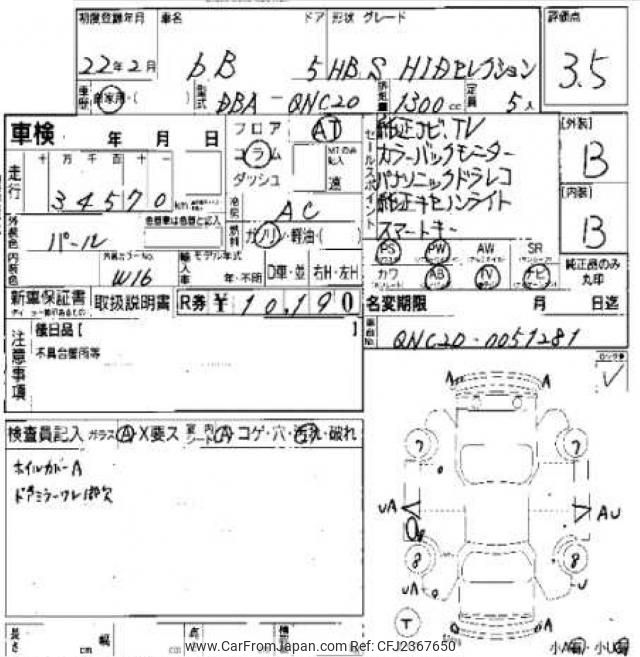 初度登録年月 車名 ドア 形状 グレード 評価点
22年2月 bB 5 HB S HIDセレクション 3.5
車歴 自家用・( ) 型式 DBA-QNC20 排気量 1300cc 定員 5人
車検 年 月 日
フロア AT
コラム MTのみ記入
ダッシュ 速
セールスポイント
純正ナビ,TV
カラーバックモニター
パナソニックドラレコ
純正キセノンライト
スマートキー
[外装] B
[内装] B
走行 十 万 千 百 十 一
34570 km
冷房 AC
燃料 ガソリン・軽油・( )
外装色 パール 色替車は色替と記入
内装色 外装カラーNo. W16
輸入車 モデル年式 年・不明 D車・並 右H・左H
PS PW AW SR
カワ AB TV ナビ
純正品のみ丸印
新車保証書 取扱説明書 R券 ¥10,190
名変期限 月 日迄
車台No. QNC20-0051281
注意事項 後日品【 】
不具合箇所等
検査員記入 ガラス A・X要ス 室内シート A・コゲ・穴・汚れ・破れ
ホイルカバーA
ドアミラーウレ部欠
A A
7 7
UA AU
8 8
UA U
T A
小A・小U
長さ cm 幅 cm 高
www.CarFromJapan.com Ref: CFJ2367650